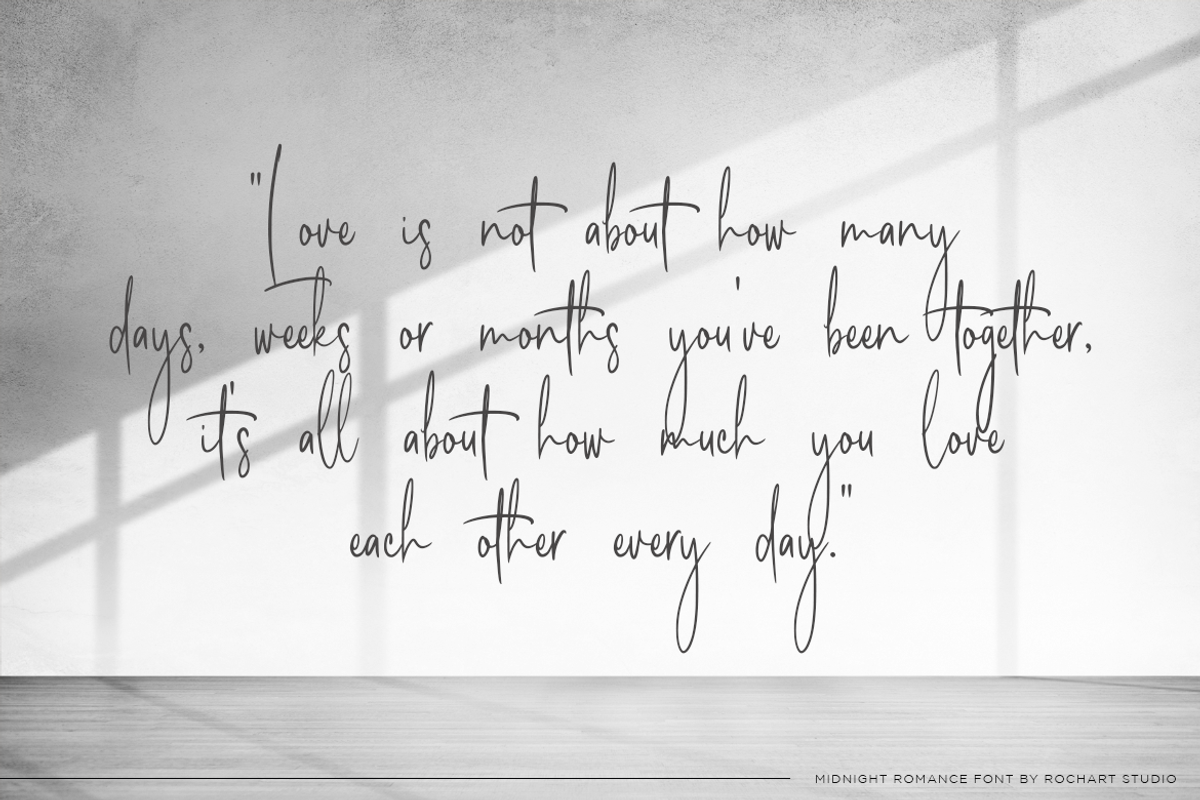 "Love is not about how many
days, weeks or months you've been together,
it's all about how much you love
each other every day."
MIDNIGHT ROMANCE FONT BY ROCHART STUDIO